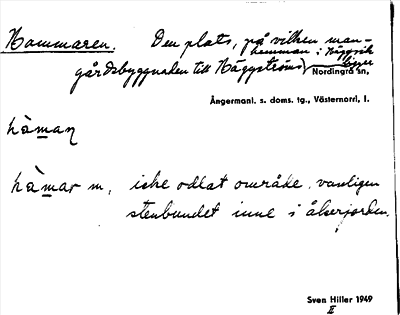 Hammaren. Den plats, på vilken man-
hemman i Häggvik
gårdsbyggnaden till Häggströms ligger
Nordingrå sn,
Ångermanl. s. doms. tg., Västernorrl, l.
hàman
hàmar m, icke odlat område, vanligen
stenbundet inne i åkerjorden.
Sven Hiller 1949
II